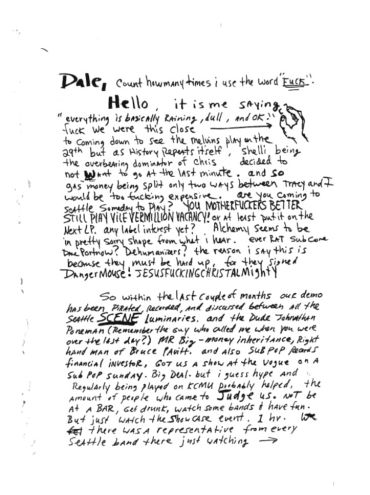 Dale, Count how many times i use the word "FUCK".
Hello, it is me saying,
"everything is basically Raining, dull, and OK."
fuck we were this close →
to coming down to see the melvins play on the
29th but as History Repeats itself, Shelli being
the overbearing dominator of Chris decided to
not Want to go at the last minute. and so
gas money being split only two ways between Tracy and I
would be too fucking expensive. are you coming to
Seattle Someday to Play? YOU MOTHERFUCKERS BETTER
STILL PLAY VILE VERMILLION VACANCY! or at least put it on the
Next LP. any label interest yet? Alchemy seems to be
in pretty sorry shape from what i hear. ever RAT Subcore
Dave Portnow? Dehumanizers? the reason i say this is
because they must be hard up, for they signed
Danger Mouse! JESUSFUCKINGCHRISTALMIGHTY
So within the last couple of months our demo
has been Pirated, recorded, and discussed between all the
Seattle SCENE luminaries. and the Dude Johnathan
Poneman (Remember the guy who called me when you were
over the last day?) MR Big-money inheritance, Right
hand man of Bruce Pavitt. and also SUB POP Records
financial investor, Got us a show at the Vogue on a
SUB POP sunday. Big Deal. but i guess hype and
Regularly being played on KCMU probably helped. the
amount of people who came to Judge us. NOT be
at a BAR, Get drunk, watch some bands & have fun.
But just watch the showcase event. 1 hr.
there was a representative from every
Seattle band there just watching →